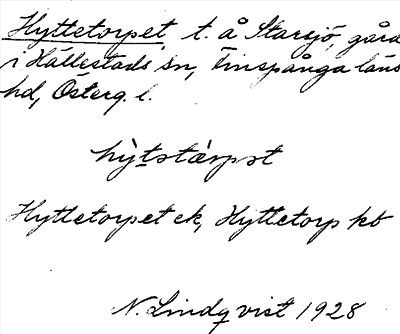 Hyttetorpet, t. å Starsjö, gård
i Hällestads sn, Finspånga läns
hd, Österg. l.
hỳtstàrpət
Hyttetorpet ek, Hyttetorp kb
N. Lindqvist 1928